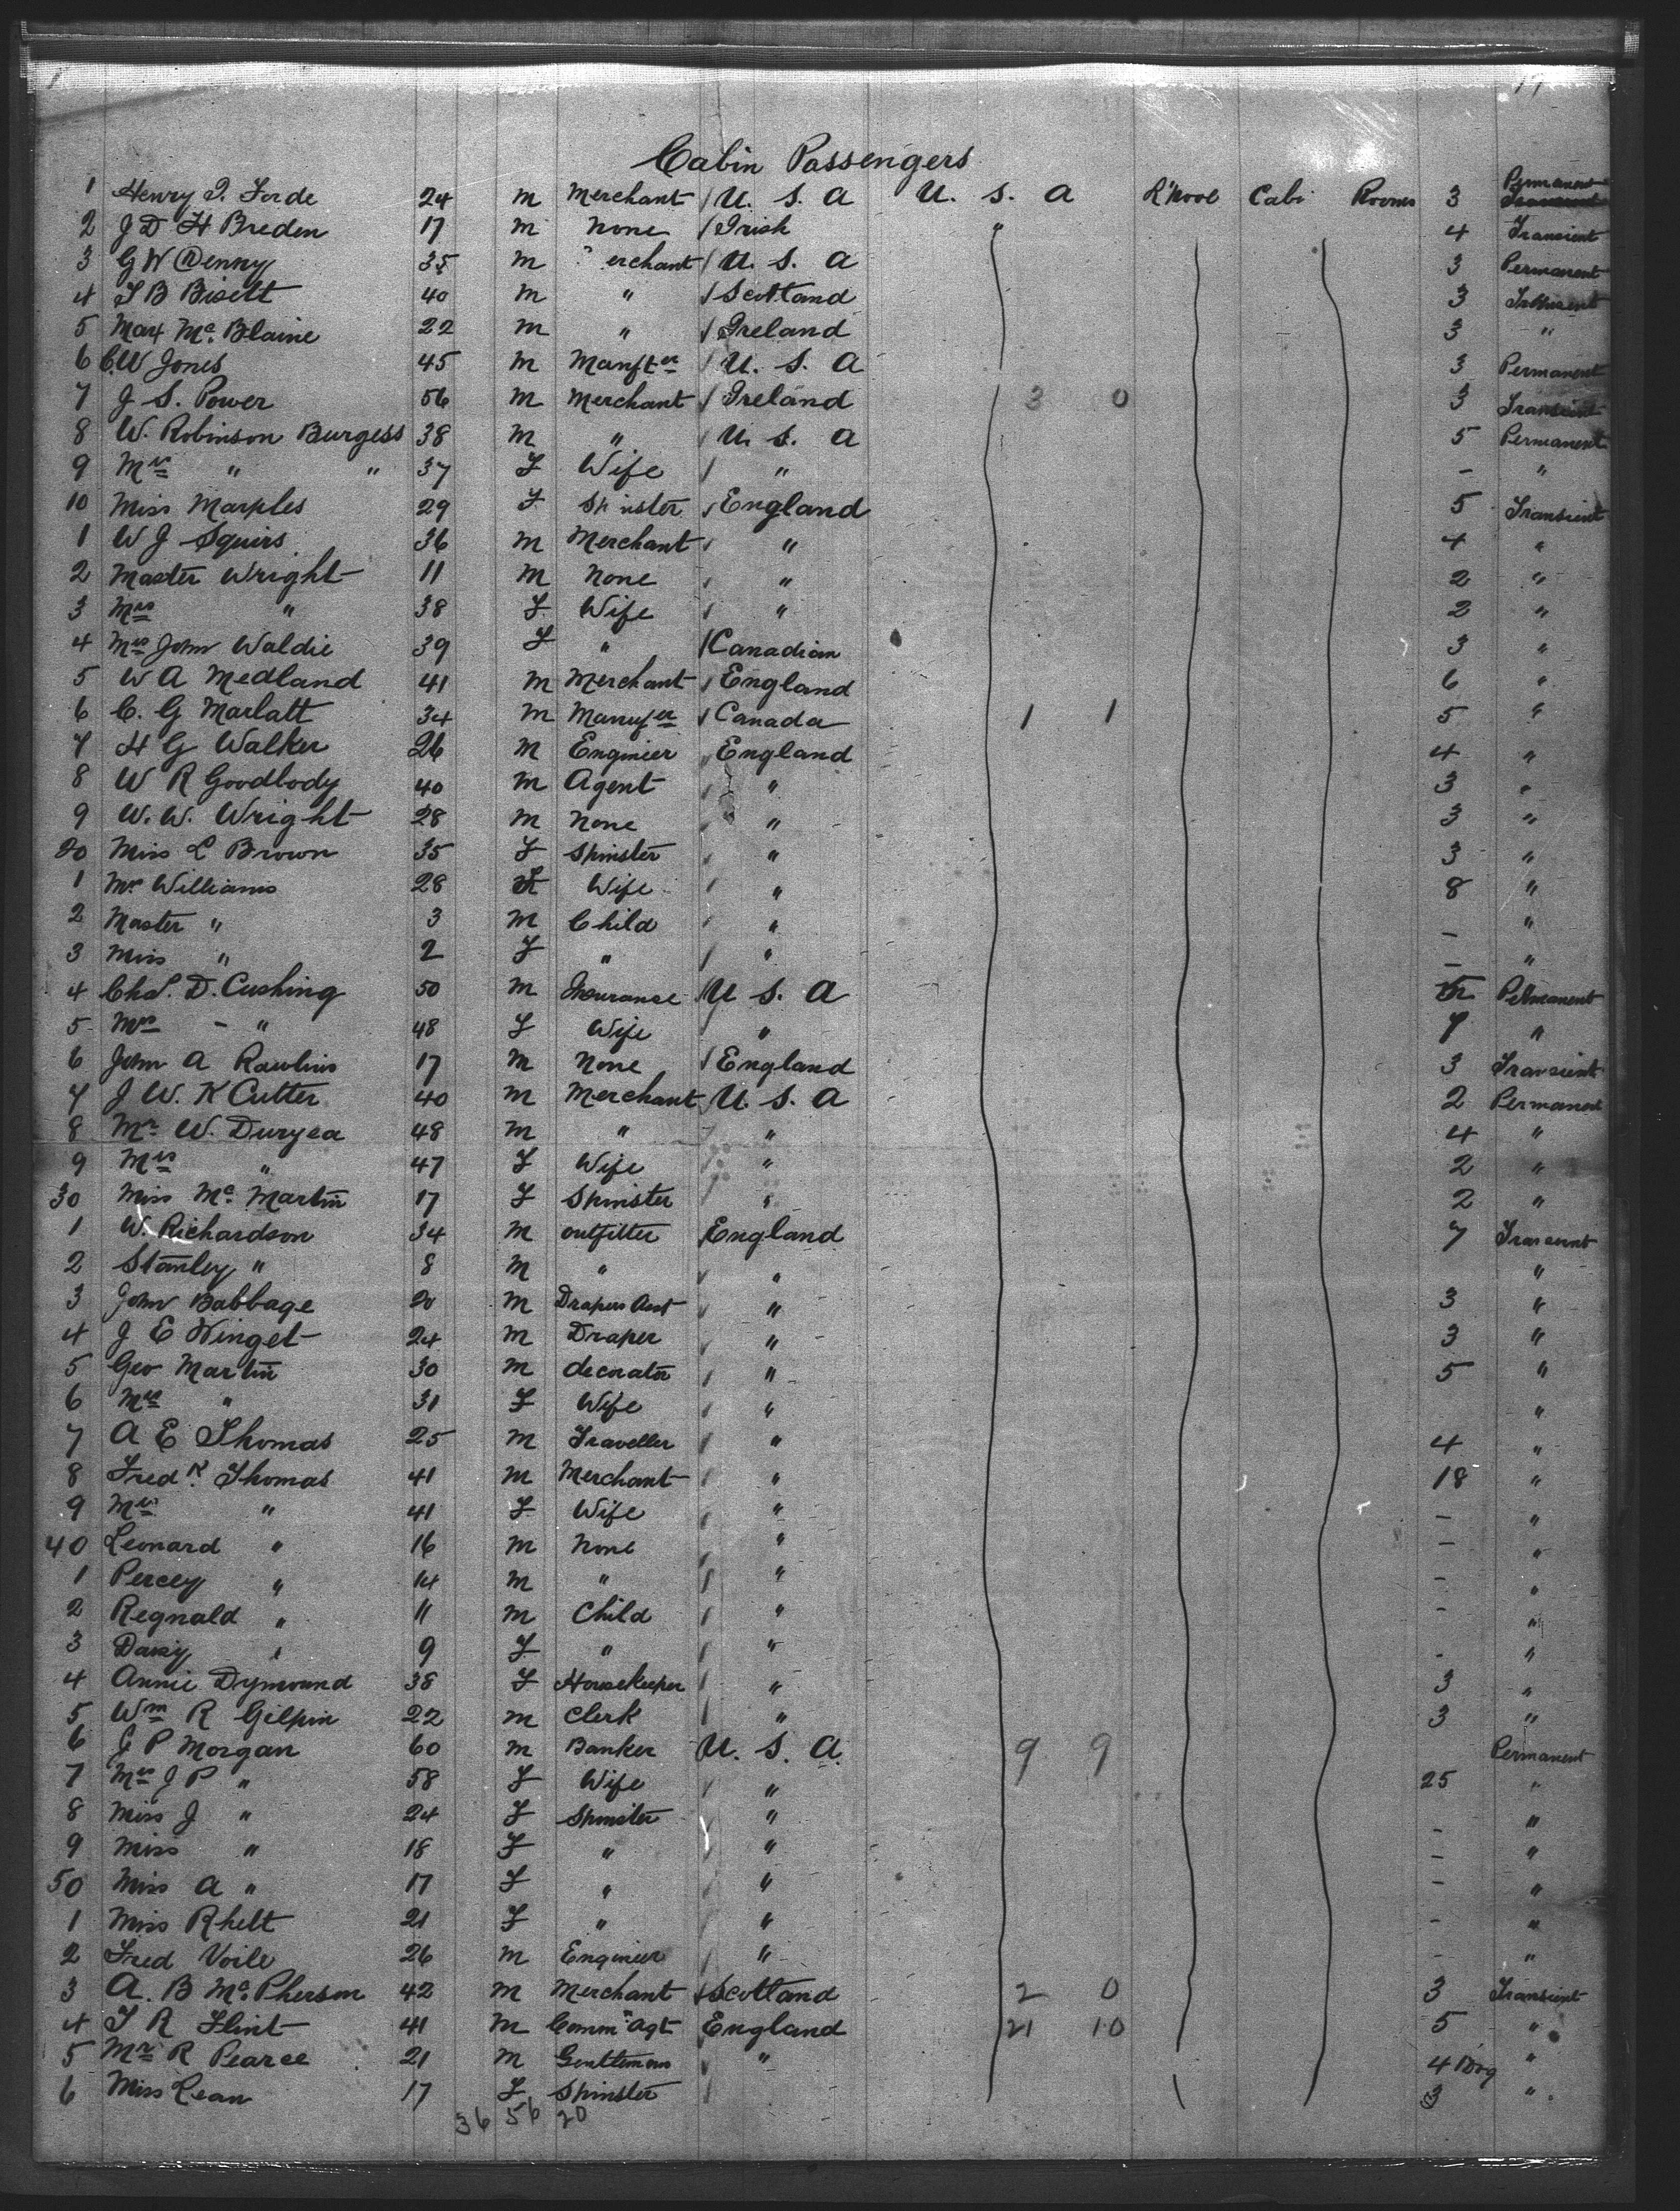 Cabin Passengers
1 Henry I. Forde 24 m Merchant U. S. A U. S. A L'pool Cabi Rooms 3 Permanent
2 J D H Breden 17 m none Irish " 4 Transient
3 G W Denny 35 m erchant U. S. A 3 Permanent
4 J B Bisett 40 m " Scotland 3 Transient
5 Max Mc Blaine 22 m " Ireland 3 "
6 C.W Jones 45 m Manftr U. S. A 3 Permanent
7 J S. Power 56 m Merchant Ireland 3 0 3 Transient
8 W. Robinson Burgess 38 m " U. S. A 5 Permanent
9 Mrs " " 37 F Wife " - "
10 Miss Marples 29 F Spinster England 5 Transient
1 W J Squirs 36 m Merchant " 4 "
2 Master Wright 11 m None " 2 "
3 Mrs " 38 F Wife " 2 "
4 Mrs John Waldie 39 F " Canadian 3 "
5 W A Medland 41 m Merchant England 6 "
6 C. G Marlatt 34 m Manufer Canada 1 1 5 "
7 H G Walker 26 m Engineer England 4 "
8 W R Goodbody 40 m Agent " 3 "
9 W. W. Wright 28 m none " 3 "
20 Miss L Brown 35 F Spinster " 3 "
1 Mrs Williams 28 F Wife " 8 "
2 Master " 3 m Child " - "
3 Miss " 2 F " " - "
4 Chas. D. Cushing 50 m Insurance U S. A Permanent
5 Mrs - " 48 F Wife " "
6 John A Rawlins 17 m None England 3 Transient
7 J W. K Cutter 40 m Merchant U. S. A 2 Permanent
8 Mr W. Duryea 48 m " " 4 "
9 Mrs " 47 F Wife " 2 "
30 Miss Mc Martin 17 F Spinster " 2 "
1 W. Richardson 34 m outfitter England 7 Transient
2 Stanley " 8 m " " "
3 John Babbage 20 m Drapers Asst " 3 "
4 J E Winget 24 m Draper " 3 "
5 Geo Martin 30 m decorator " 5 "
6 Mrs " 31 F Wife " "
7 A E Thomas 25 m Traveller " 4 "
8 Fredk. Thomas 41 m Merchant " 18 "
9 Mrs " 41 F Wife " - "
40 Leonard " 16 m None " - "
1 Percey " 14 m " " - "
2 Regnald " 11 m Child " - "
3 Daisy " 9 F " " - "
4 Annie Dymound 38 F Housekeeper " 3 "
5 Wm R Gilpin 22 m Clerk " 3 "
6 J P Morgan 60 m Banker U. S. A. 9 9 Permanent
7 Mrs J P " 58 F Wife " 25 "
8 Miss J " 24 F Spinster " - "
9 Miss " 18 F " " - "
50 Miss A " 17 F " " - "
1 Miss Rhelt 21 F " " - "
2 Fred Voile 26 m Engineer " - "
3 A. B McPherson 42 m Merchant Scotland 2 0 3 Transient
4 T R Flint 41 m Commn Agt England 21 10 5 "
5 Mr R Pearce 21 m Gentleman " 4 1 Dog "
6 Miss Lean 17 F Spinster 3 "
36 56 20